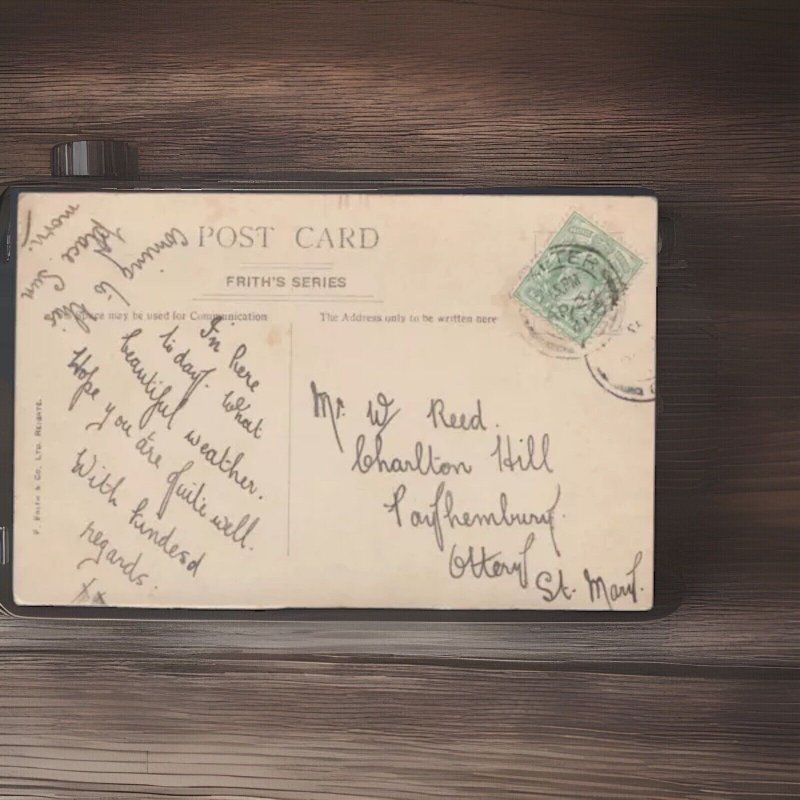 POST CARD
FRITH'S SERIES
space may be used for Communication
The Address only to be written here
In here
today. What
beautiful weather.
Hope you are quite well.
With kindesd
regards.
xx
Coming to
place Sun
morn.
Mr. W Reed.
Charlton Hill
Payhembury.
Ottery
St. Mary.
F. Frith & Co. Ltd. Reigate.